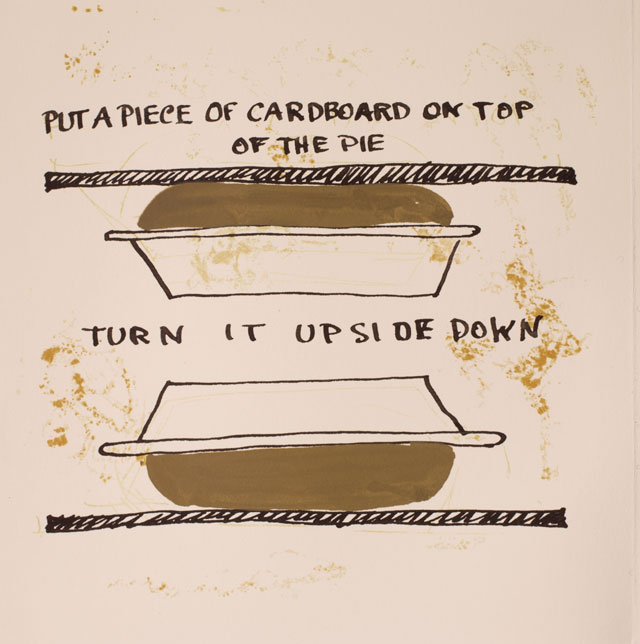 PUT A PIECE OF CARDBOARD ON TOP
OF THE PIE
TURN IT UPSIDE DOWN